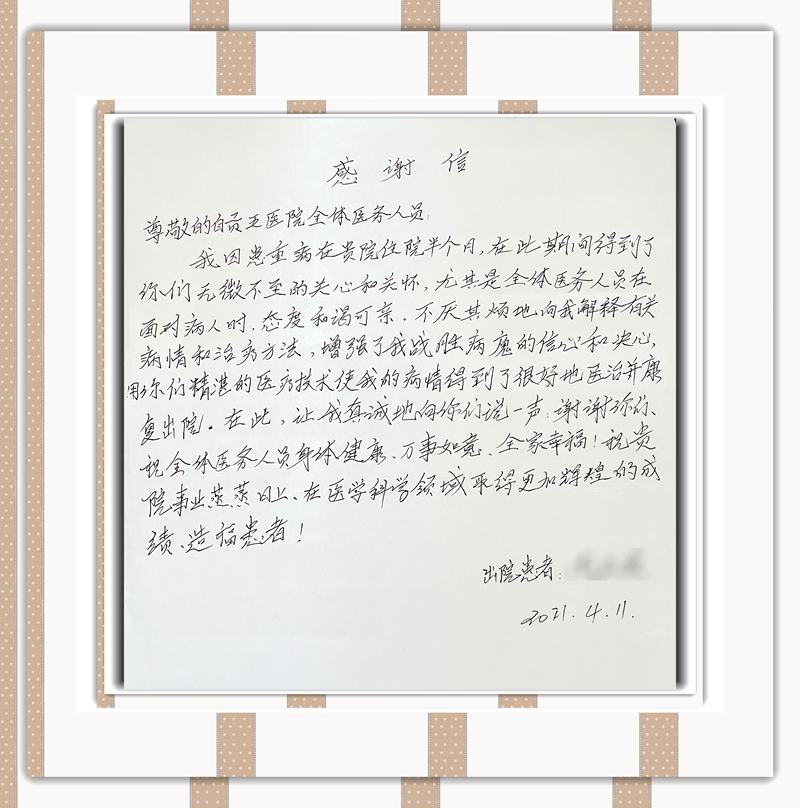 感谢信
尊敬的自贡五医院全体医务人员:
我因患重病在贵院住院半个月,在此期间得到了
你们无微不至的关心和关怀,尤其是全体医务人员在
面对病人时、态度和谒可亲、不厌其烦地向我解释有关
病情和治疗方法,增强了我战胜病魔的信心和决心,
用你们精湛的医疗技术使我的病情得到了很好地医治并康
复出院。在此,让我真诚地向你们说一声:谢谢你们、
祝全体医务人员身体健康、万事如意、全家幸福!祝贵
院事业蒸蒸日上、在医学科学领域取得更加辉煌的成
绩、造福患者!
出院患者:
2021.4.11.